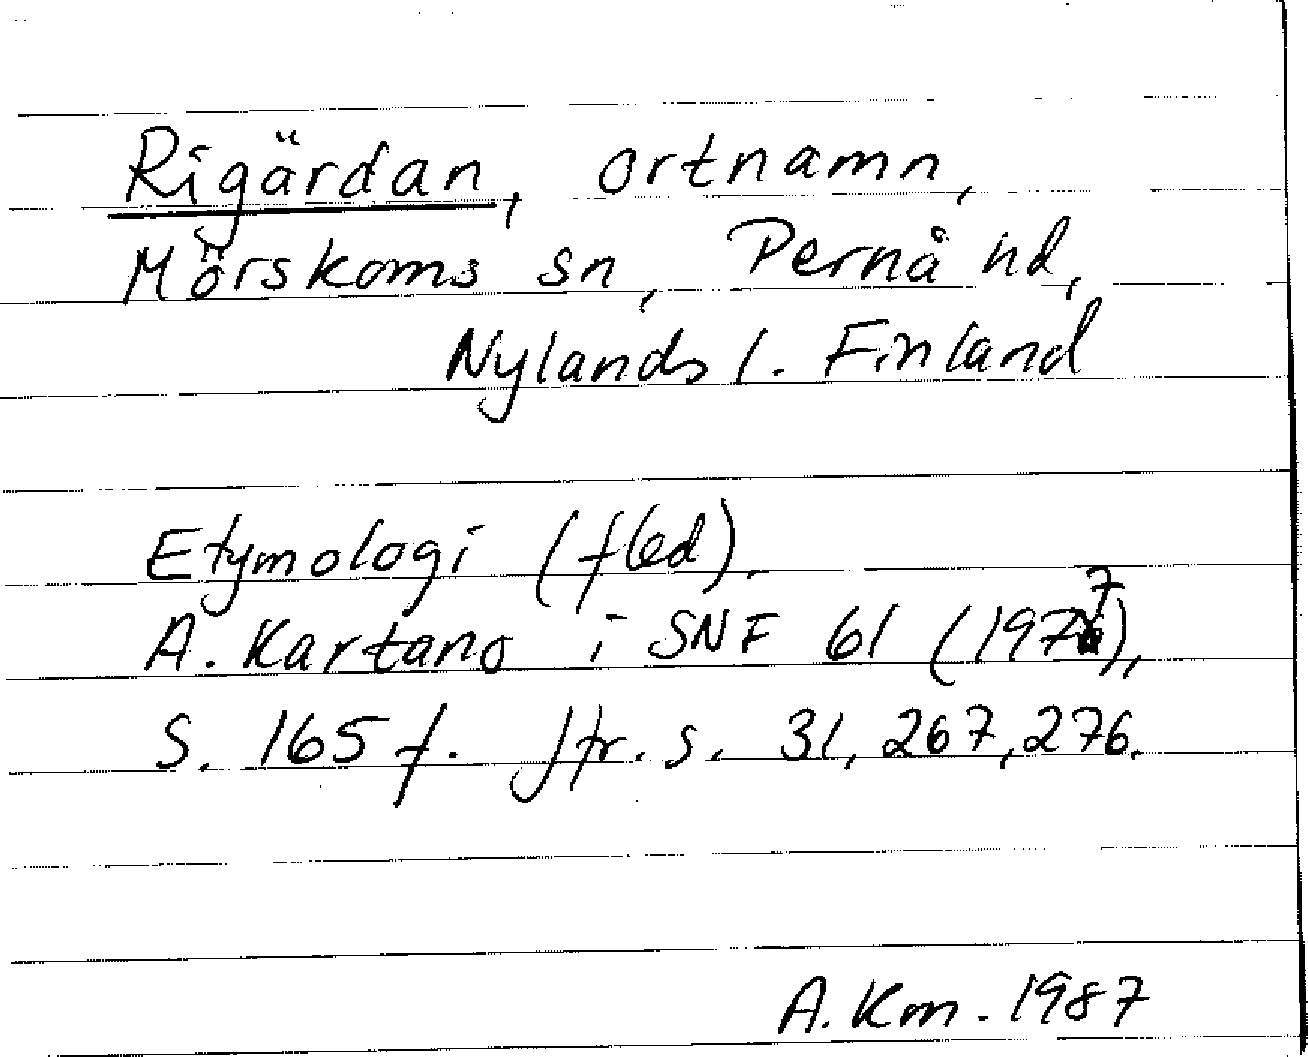 Rigärdan, ortnamn,
Mörskoms sn, Pernå hd,
Nylands l. Finland
Etymologi (fled).
A. Kartano i SNF 61 (1977),
S. 165 f. Jfr. s. 31, 267, 276.
A. Km. 1987